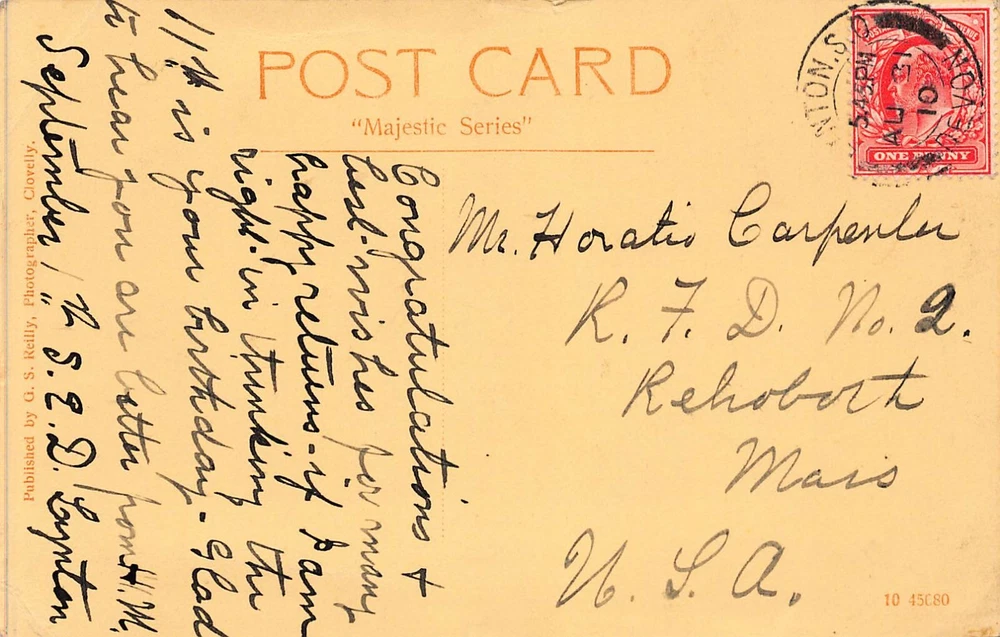 POST CARD
"Majestic Series"
NTON.S.O
N.DEVON
5.45PM
AU 31
10
ONE PENNY
Congratulations &
best-wishes for many
happy returns-if I am
right-in thinking the
11th is your birthday-Glad
to hear you are better from H.M.
September 1st S.E.D. Lynton
Mr. Horatio Carpenter
R. F. D. No. 2.
Rehoboth
Mass
U. S. A.
Published by G. S. Reilly, Photographer, Clovelly.
10 45080